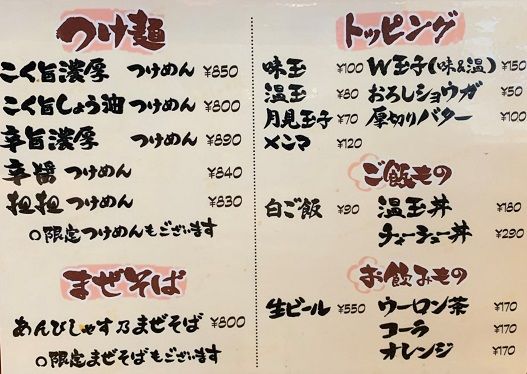 つけ麺
こく旨濃厚 つけめん ¥850
こく旨しょう油 つけめん ¥800
辛旨濃厚 つけめん ¥890
辛醤 つけめん ¥840
担担 つけめん ¥830
○限定つけめんもございます
まぜそば
あんびしゃす乃まぜそば ¥800
○限定まぜそばもございます
トッピング
味玉 ¥100 W玉子(味&温) ¥150
温玉 ¥80 おろしショウガ ¥50
月見玉子 ¥70 厚切りバター ¥100
メンマ ¥120
ご飯もの
白ご飯 ¥90 温玉丼 ¥180
チャーチュー丼 ¥290
お飲みもの
生ビール ¥550 ウーロン茶 ¥170
コーラ ¥170
オレンジ ¥170